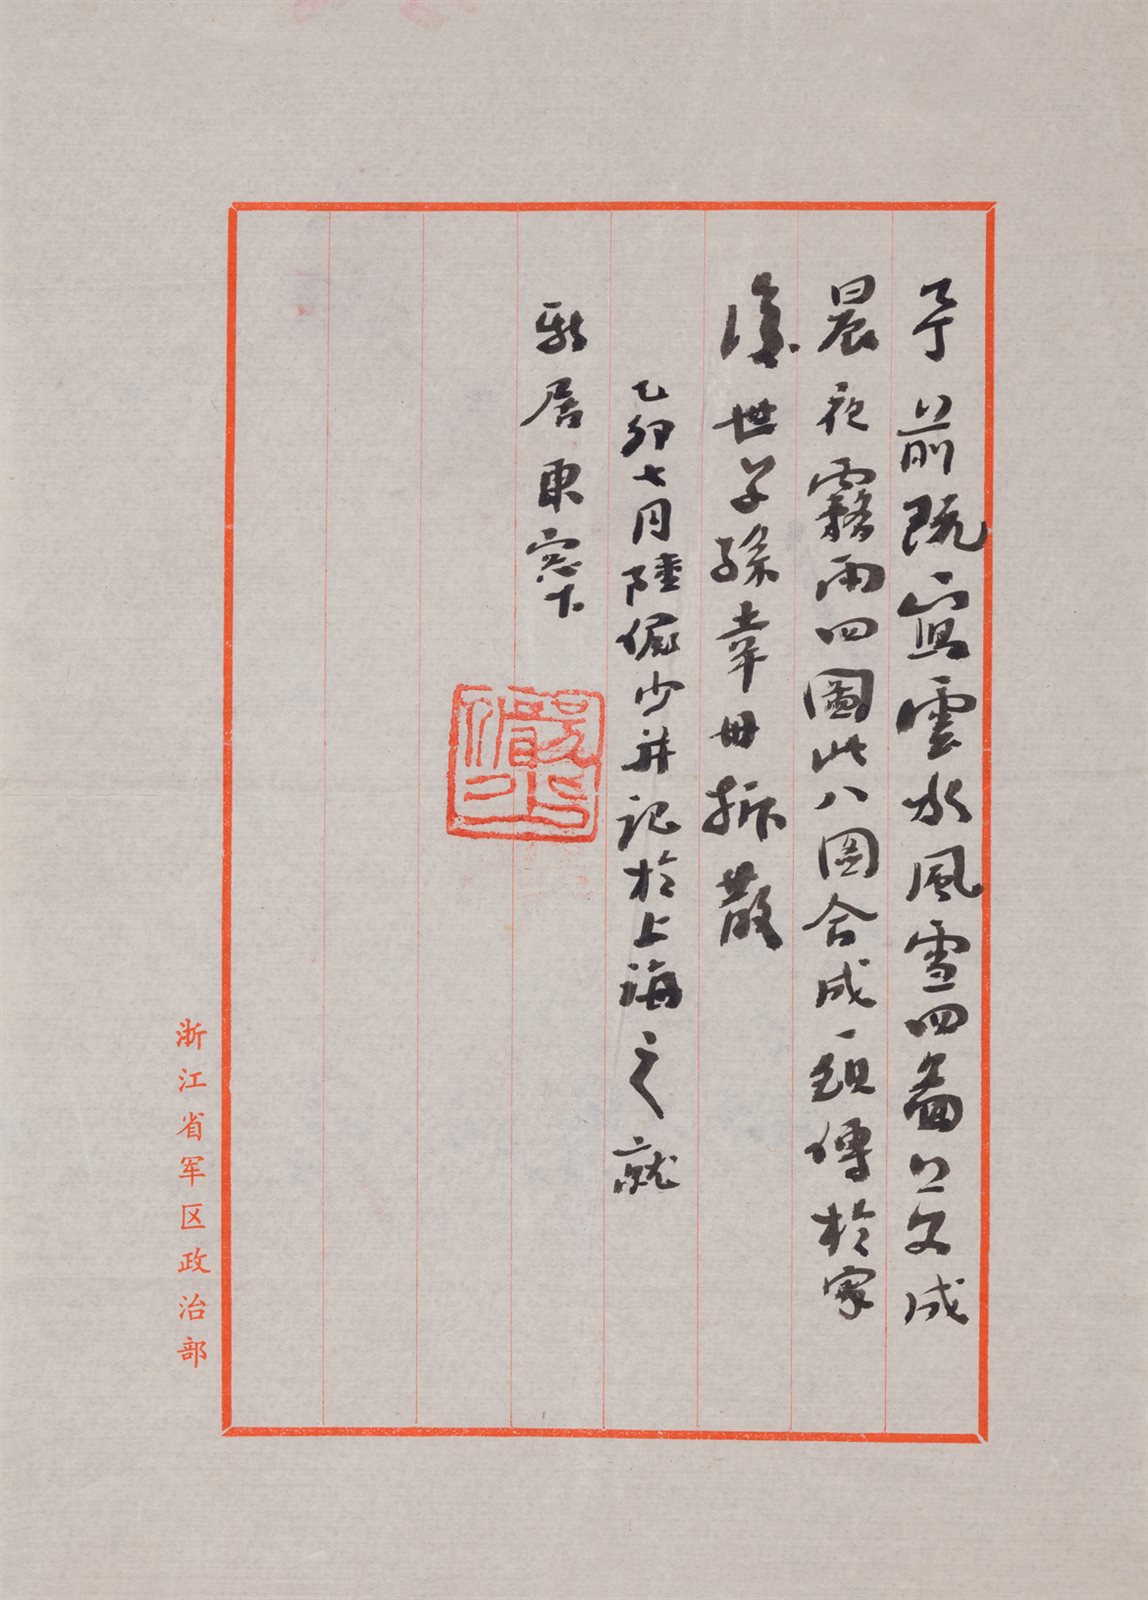 予前既寫雲水風雪四啚茲又成
晨夜霧雨四圖此八圖合成一類傳於家
後世子孫幸毋拆散
乙卯七月陸儼少并記於上海之就
新居東窓下
浙江省军区政治部